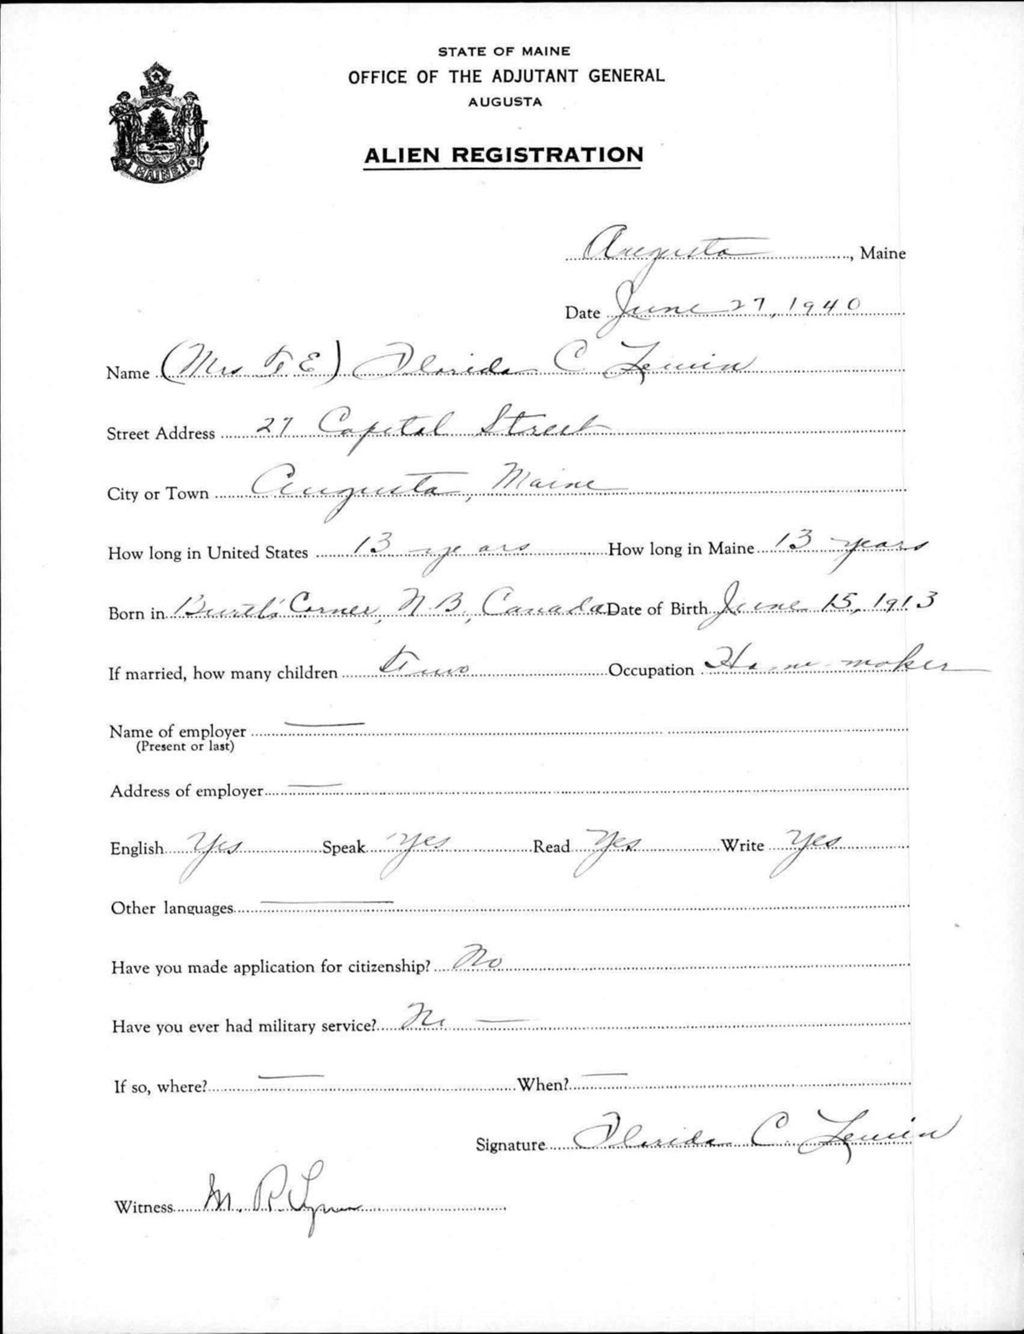 STATE OF MAINE
OFFICE OF THE ADJUTANT GENERAL
AUGUSTA
ALIEN REGISTRATION
MAINE
Augusta, Maine
Date June 27, 1940
Name (Mrs F E) Florida C Lewin
Street Address 27 Capital Street
City or Town Augusta, Maine
How long in United States 13 years How long in Maine 13 years
Born in Burtt's Corner, N B, Canada Date of Birth June 15, 1913
If married, how many children two Occupation Home maker
Name of employer —
(Present or last)
Address of employer —
English Yes Speak Yes Read Yes Write Yes
Other languages —
Have you made application for citizenship? No
Have you ever had military service? No —
If so, where? — When? —
Signature Florida C. Lewin
Witness M. R. Lynn